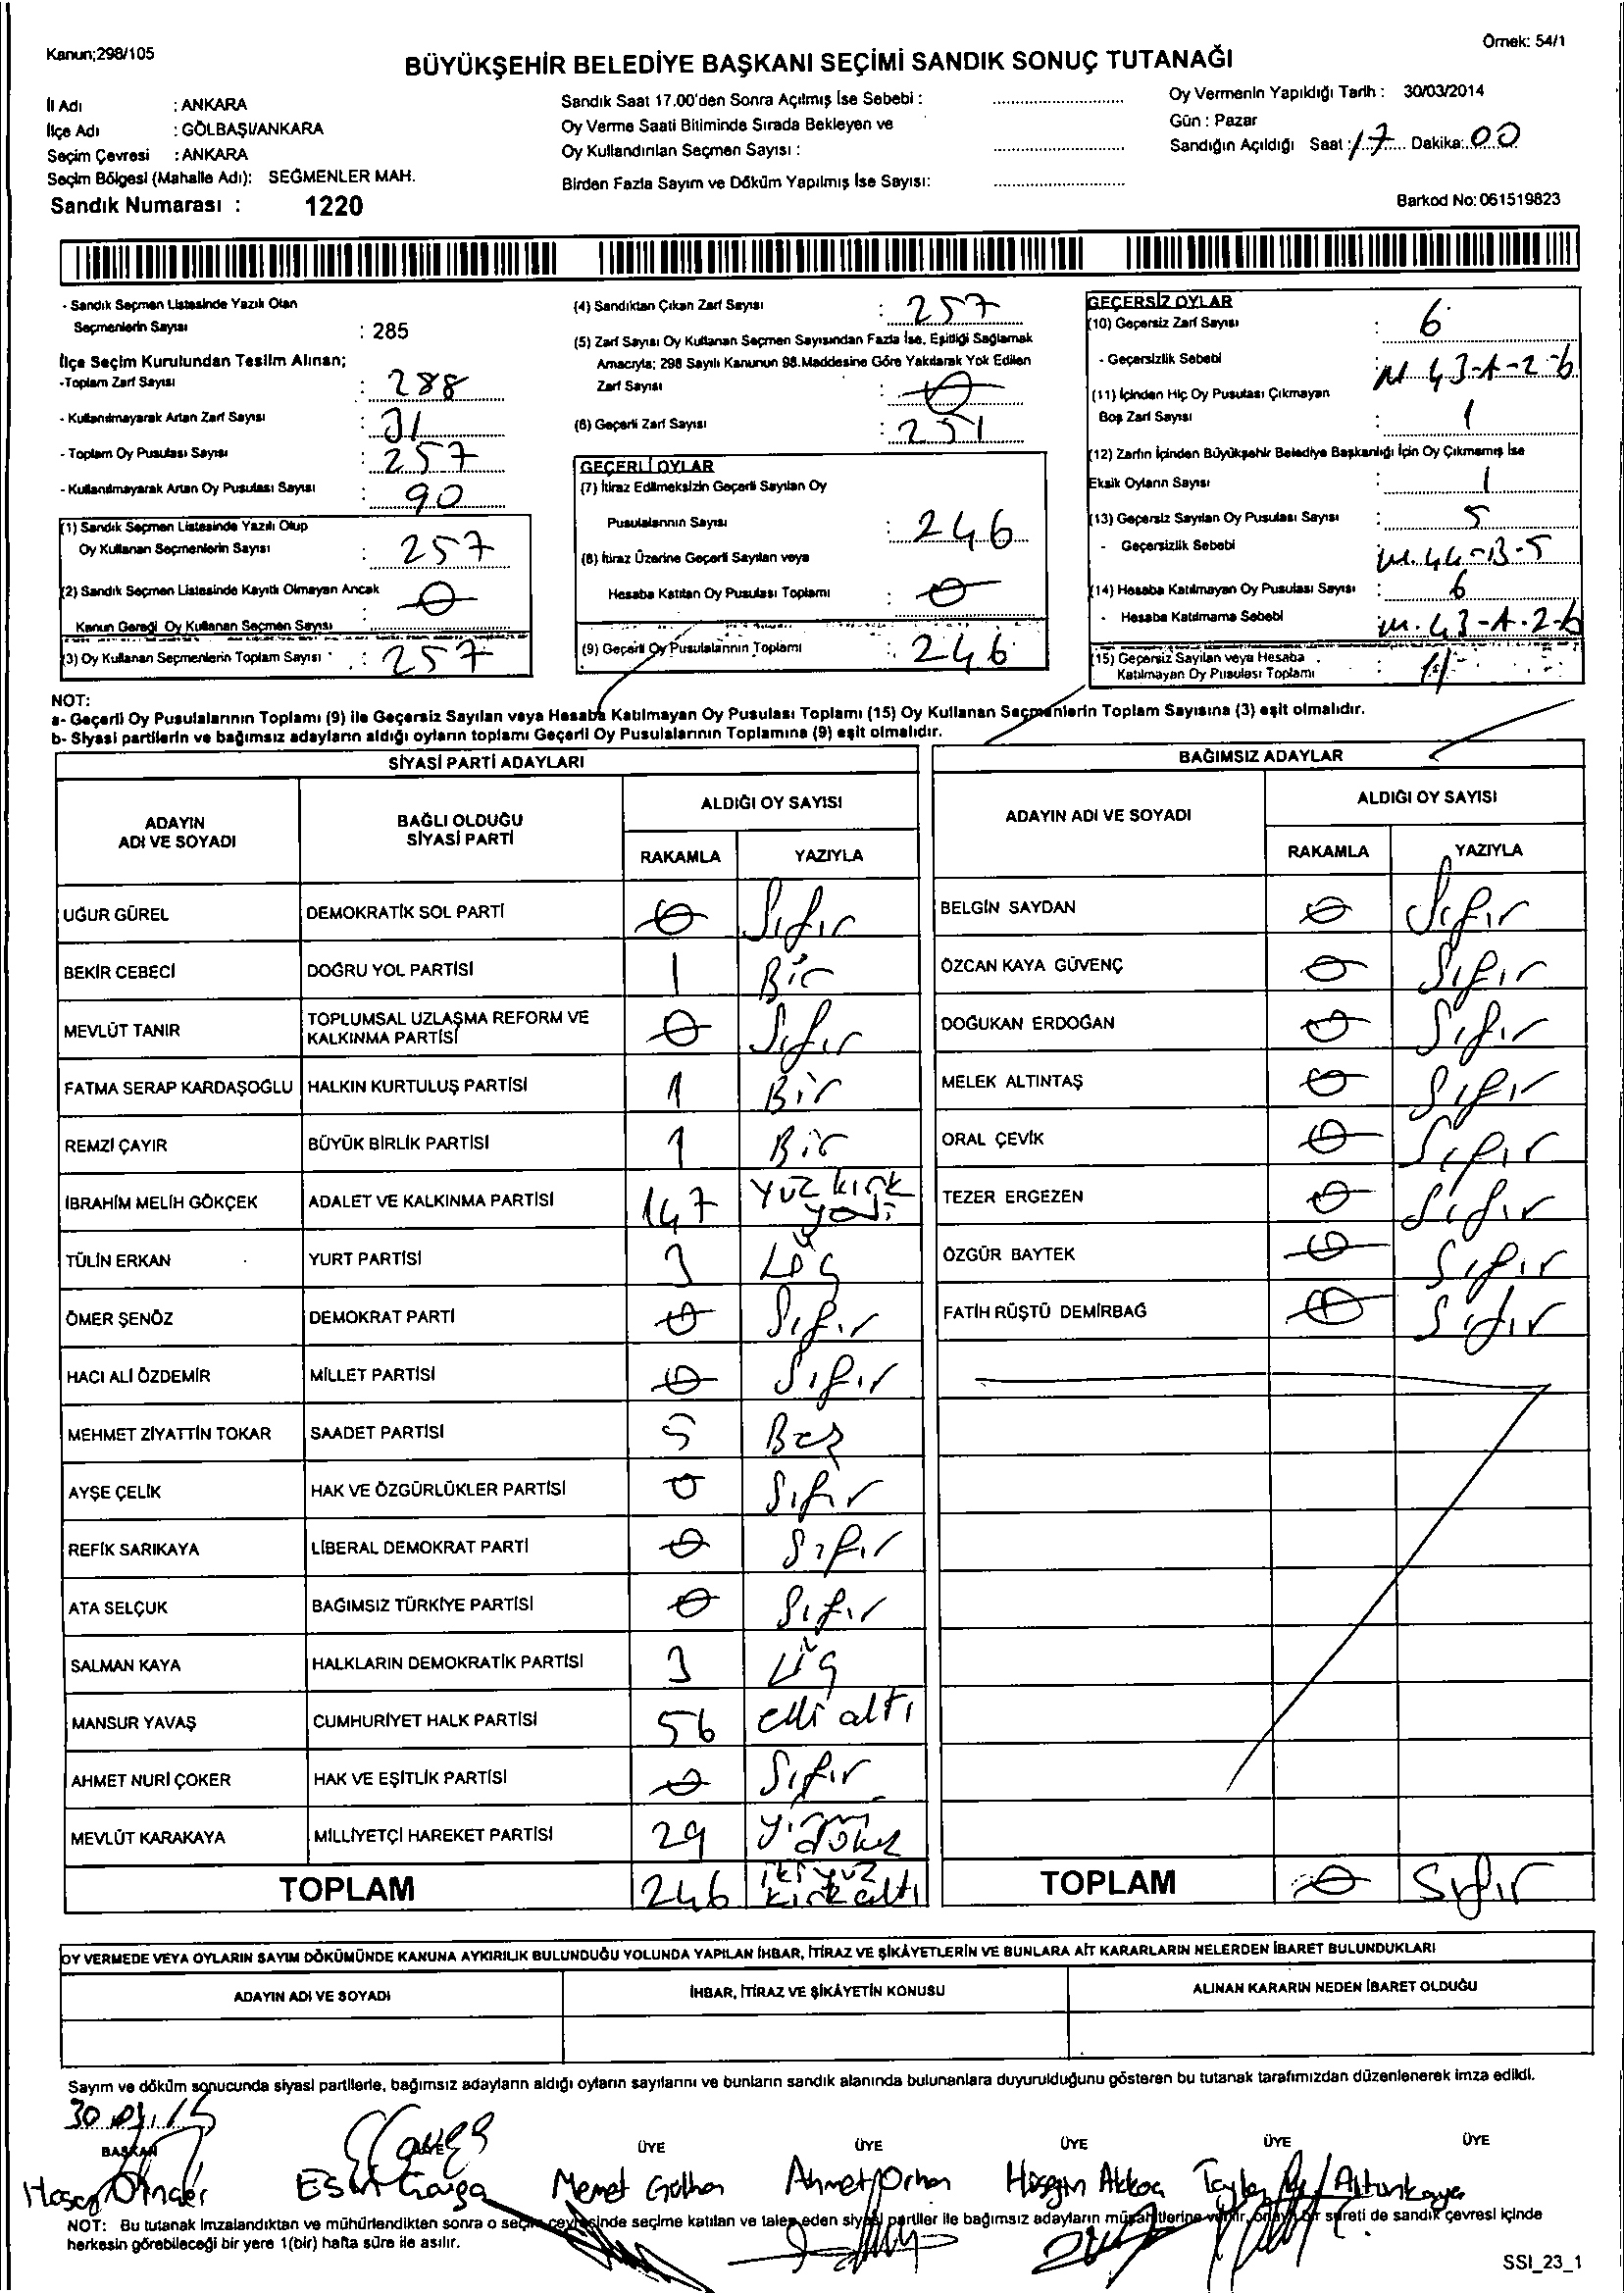 Kanun;298/105
Örnek: 54/1
BÜYÜKŞEHİR BELEDİYE BAŞKANI SEÇİMİ SANDIK SONUÇ TUTANAĞI
İl Adı : ANKARA
İlçe Adı : GÖLBAŞI/ANKARA
Seçim Çevresi : ANKARA
Seçim Bölgesi (Mahalle Adı): SEĞMENLER MAH.
Sandık Numarası : 1220
Sandık Saat 17.00'den Sonra Açılmış İse Sebebi :
Oy Verme Saati Bitiminde Sırada Bekleyen ve
Oy Kullandırılan Seçmen Sayısı :
Birden Fazla Sayım ve Döküm Yapılmış İse Sayısı:
Oy Vermenin Yapıldığı Tarih : 30/03/2014
Gün : Pazar
Sandığın Açıldığı Saat : 17 Dakika: 00
Barkod No: 061519823
- Sandık Seçmen Listesinde Yazılı Olan
Seçmenlerin Sayısı : 285
İlçe Seçim Kurulundan Teslim Alınan;
-Toplam Zarf Sayısı : 288
- Kullanılmayarak Artan Zarf Sayısı : 31
- Toplam Oy Pusulası Sayısı : 257
- Kullanılmayarak Artan Oy Pusulası Sayısı : 90
(1) Sandık Seçmen Listesinde Yazılı Olup
Oy Kullanan Seçmenlerin Sayısı : 257
(2) Sandık Seçmen Listesinde Kayıtlı Olmayan Ancak
Kanun Gereği Oy Kullanan Seçmen Sayısı : 0
(3) Oy Kullanan Seçmenlerin Toplam Sayısı : 257
(4) Sandıktan Çıkan Zarf Sayısı : 257
(5) Zarf Sayısı Oy Kullanan Seçmen Sayısından Fazla İse, Eşitliği Sağlamak
Amacıyla; 298 Sayılı Kanunun 98.Maddesine Göre Yakılarak Yok Edilen
Zarf Sayısı : 0
(6) Geçerli Zarf Sayısı : 251
GEÇERLİ OYLAR
(7) İtiraz Edilmeksizin Geçerli Sayılan Oy
Pusulalarının Sayısı : 246
(8) İtiraz Üzerine Geçerli Sayılan veya
Hesaba Katılan Oy Pusulası Toplamı : 0
(9) Geçerli Oy Pusulalarının Toplamı : 246
GEÇERSİZ OYLAR
(10) Geçersiz Zarf Sayısı : 6
- Geçersizlik Sebebi : M.43-A-2-b
(11) İçinden Hiç Oy Pusulası Çıkmayan
Boş Zarf Sayısı : 1
(12) Zarfın İçinden Büyükşehir Belediye Başkanlığı İçin Oy Çıkmamış İse
Eksik Oyların Sayısı : 1
(13) Geçersiz Sayılan Oy Pusulası Sayısı : 5
- Geçersizlik Sebebi m.44-B-5
(14) Hesaba Katılmayan Oy Pusulası Sayısı : 6
- Hesaba Katılmama Sebebi m.43-A-2-b
(15) Geçersiz Sayılan veya Hesaba
Katılmayan Oy Pusulası Toplamı : 11
NOT:
a- Geçerli Oy Pusulalarının Toplamı (9) ile Geçersiz Sayılan veya Hesaba Katılmayan Oy Pusulası Toplamı (15) Oy Kullanan Seçmenlerin Toplam Sayısına (3) eşit olmalıdır.
b- Siyasi partilerin ve bağımsız adayların aldığı oyların toplamı Geçerli Oy Pusulalarının Toplamına (9) eşit olmalıdır.
SİYASİ PARTİ ADAYLARI
ADAYIN ADI VE SOYADI
BAĞLI OLDUĞU SİYASİ PARTİ
ALDIĞI OY SAYISI
RAKAMLA YAZIYLA
UĞUR GÜREL DEMOKRATİK SOL PARTİ 0 Sıfır
BEKİR CEBECİ DOĞRU YOL PARTİSİ 1 Bir
MEVLÜT TANIR TOPLUMSAL UZLAŞMA REFORM VE KALKINMA PARTİSİ 0 Sıfır
FATMA SERAP KARDAŞOĞLU HALKIN KURTULUŞ PARTİSİ 1 Bir
REMZİ ÇAYIR BÜYÜK BİRLİK PARTİSİ 1 Bir
İBRAHİM MELİH GÖKÇEK ADALET VE KALKINMA PARTİSİ 147 Yüz kırk yedi
TÜLİN ERKAN YURT PARTİSİ 3 Üç
ÖMER ŞENÖZ DEMOKRAT PARTİ 0 Sıfır
HACI ALİ ÖZDEMİR MİLLET PARTİSİ 0 Sıfır
MEHMET ZİYATTİN TOKAR SAADET PARTİSİ 5 Beş
AYŞE ÇELİK HAK VE ÖZGÜRLÜKLER PARTİSİ 0 Sıfır
REFİK SARIKAYA LİBERAL DEMOKRAT PARTİ 0 Sıfır
ATA SELÇUK BAĞIMSIZ TÜRKİYE PARTİSİ 0 Sıfır
SALMAN KAYA HALKLARIN DEMOKRATİK PARTİSİ 3 Üç
MANSUR YAVAŞ CUMHURİYET HALK PARTİSİ 56 elli altı
AHMET NURİ ÇOKER HAK VE EŞİTLİK PARTİSİ 0 Sıfır
MEVLÜT KARAKAYA MİLLİYETÇİ HAREKET PARTİSİ 29
TOPLAM 246 iki yüz kırk altı
BAĞIMSIZ ADAYLAR
ADAYIN ADI VE SOYADI
ALDIĞI OY SAYISI
RAKAMLA YAZIYLA
BELGİN SAYDAN 0 Sıfır
ÖZCAN KAYA GÜVENÇ 0 Sıfır
DOĞUKAN ERDOĞAN 0 Sıfır
MELEK ALTINTAŞ 0 Sıfır
ORAL ÇEVİK 0 Sıfır
TEZER ERGEZEN 0 Sıfır
ÖZGÜR BAYTEK 0 Sıfır
FATİH RÜŞTÜ DEMİRBAĞ 0 Sıfır
TOPLAM 0 Sıfır
OY VERMEDE VEYA OYLARIN SAYIM DÖKÜMÜNDE KANUNA AYKIRILIK BULUNDUĞU YOLUNDA YAPILAN İHBAR, İTİRAZ VE ŞİKÂYETLERİN VE BUNLARA AİT KARARLARIN NELERDEN İBARET BULUNDUKLARI
ADAYIN ADI VE SOYADI
İHBAR, İTİRAZ VE ŞİKÂYETİN KONUSU
ALINAN KARARIN NEDEN İBARET OLDUĞU
Sayım ve döküm sonucunda siyasi partilerle, bağımsız adayların aldığı oyların sayılarını ve bunların sandık alanında bulunanlara duyurulduğunu gösteren bu tutanak tarafımızdan düzenlenerek imza edildi.
BAŞKAN ÜYE ÜYE ÜYE ÜYE ÜYE
Memet Ahmet Orhan
NOT: Bu tutanak imzalandıktan ve mühürlendikten sonra o seçim çevresinde seçime katılan ve talep eden siyasi partiler ile bağımsız adayların müşahitlerine verilir, onaylı bir sureti de sandık çevresi içinde
herkesin görebileceği bir yere 1(bir) hafta süre ile asılır.
SSI_23_1